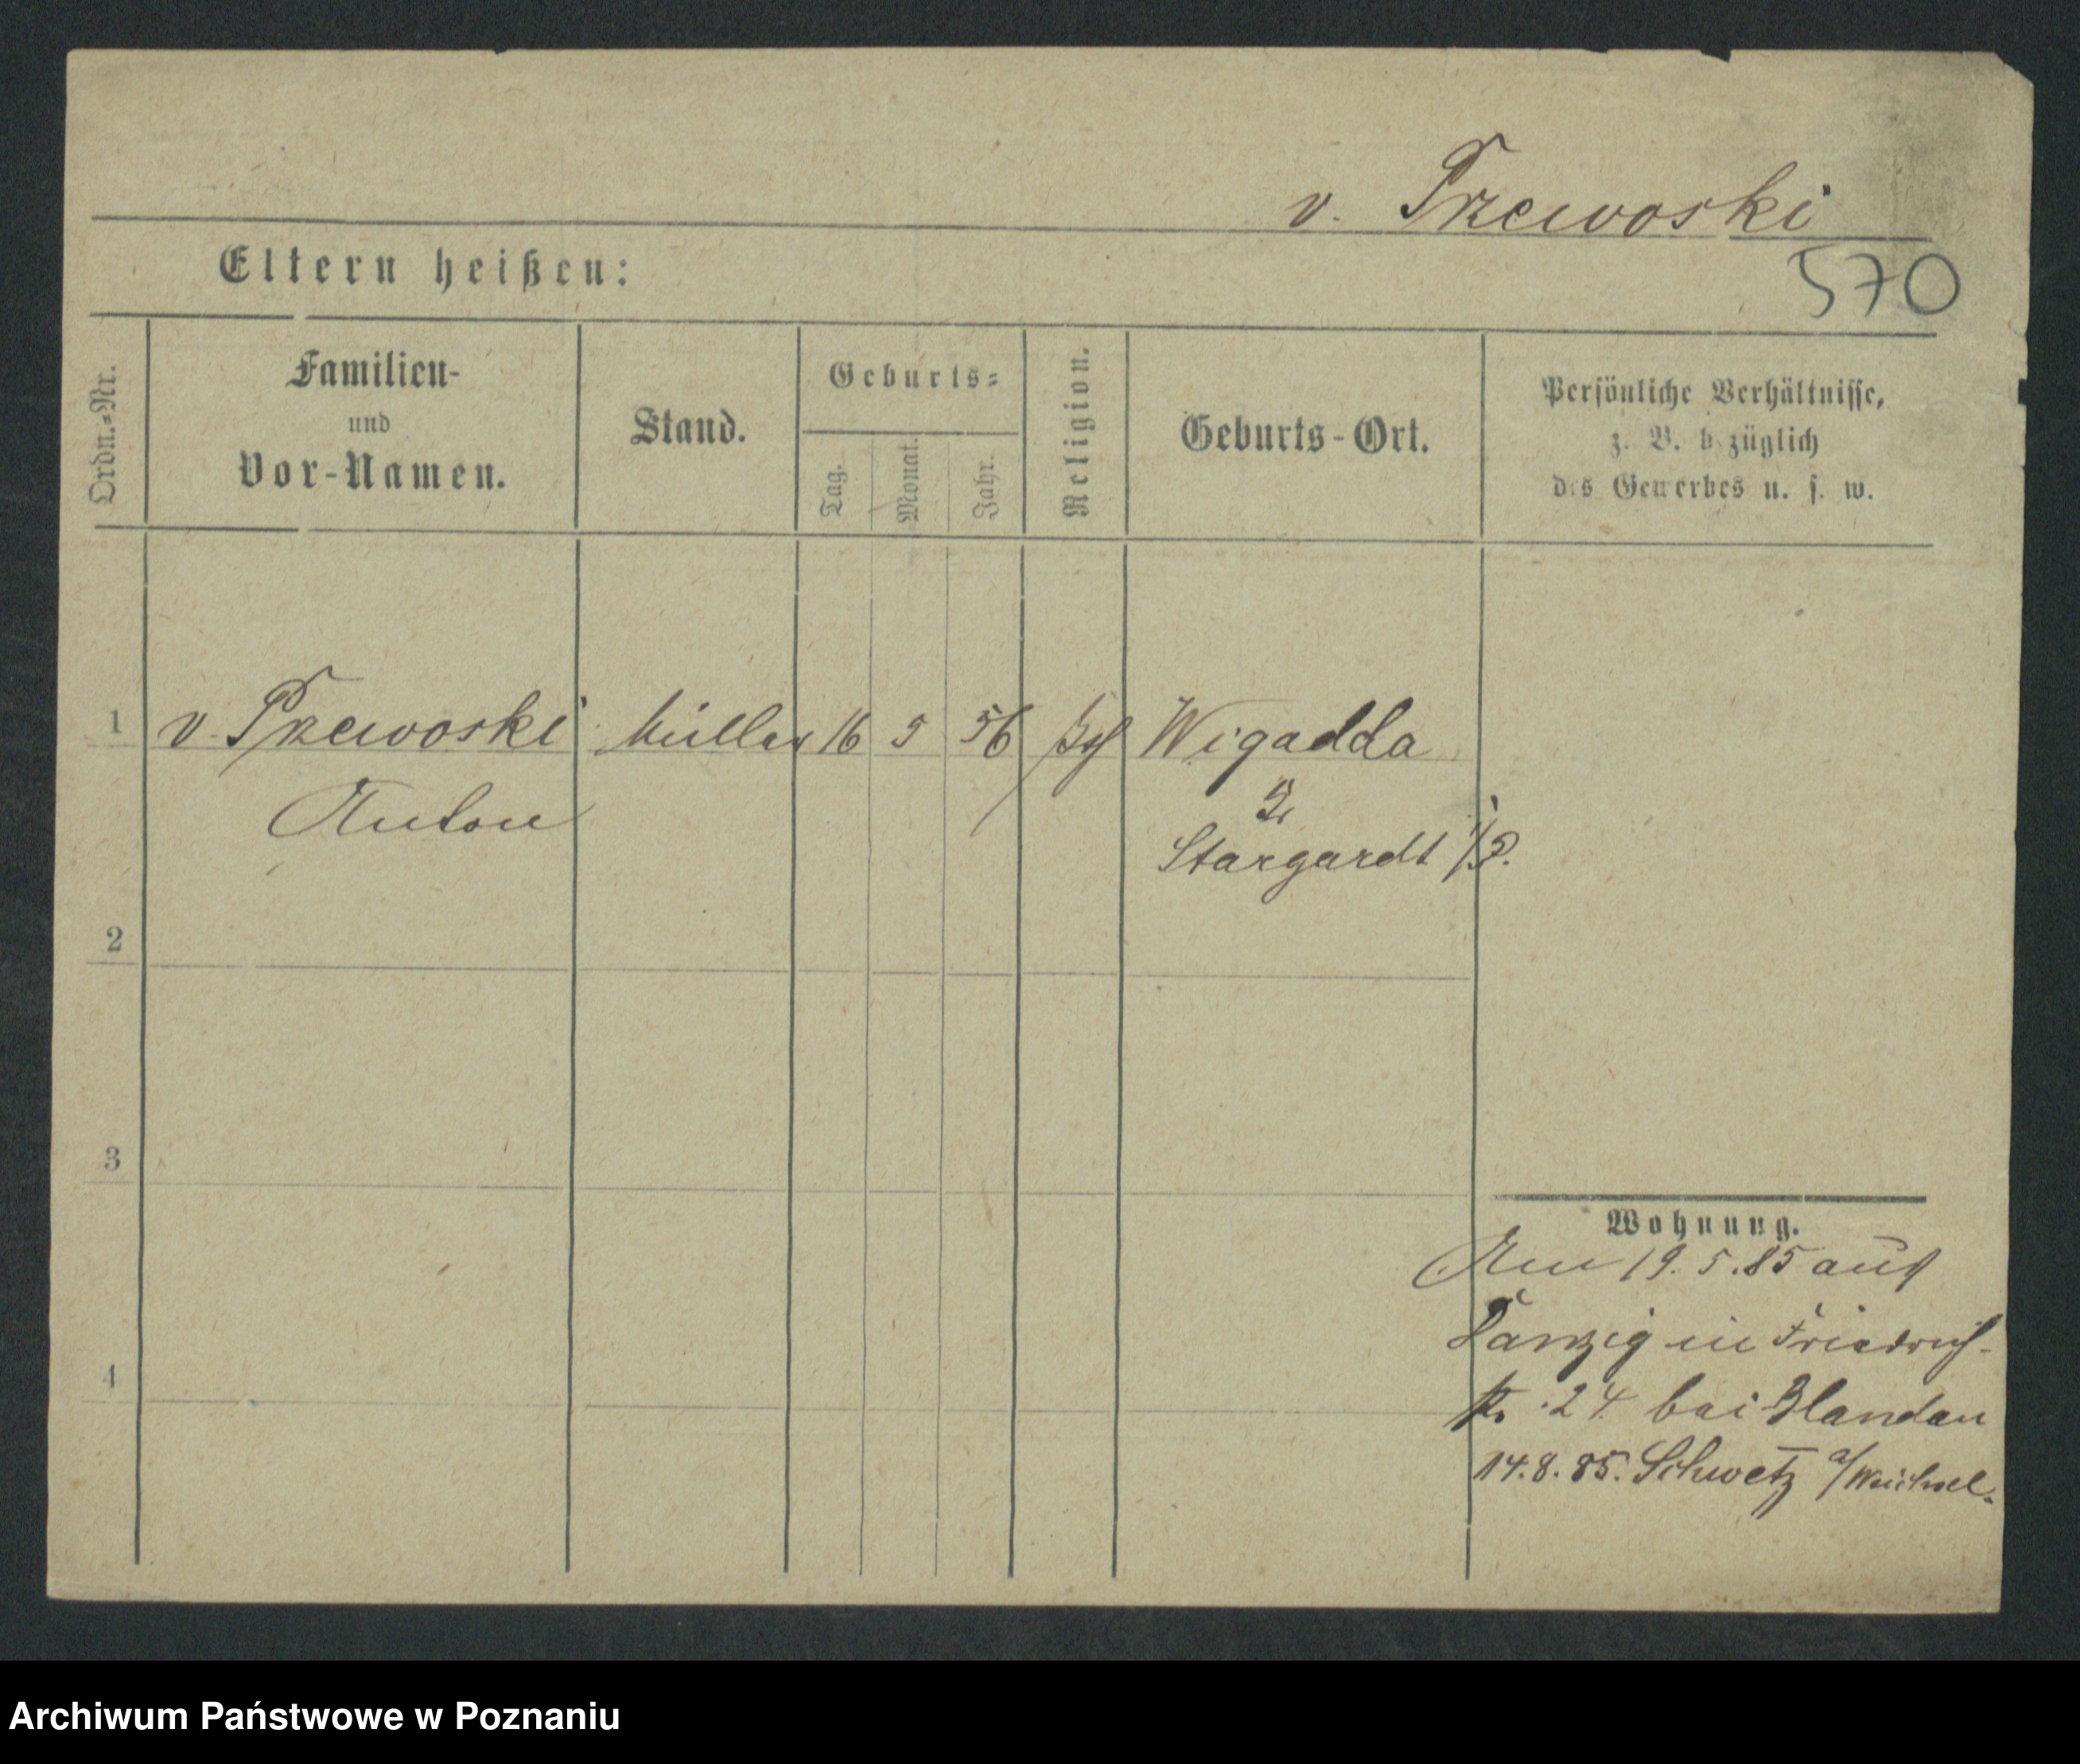 v. Przewoski
570
Eltern heißen:
Ordn.-Nr.
Familien-
und
Vor-Namen.
Stand.
Geburts-
Tag.
Monat.
Jahr.
Religion.
Geburts-Ort.
Persönliche Verhältnisse,
z. B. bezüglich
des Gewerbes u. s. w.
1 v. Przewoski Müller 16 5 56 Wigadda
Anton
Stargardt i/P.
2
3
4
Wohnung.
Am 19.5.85 aus
Danzig in Friedrich-
str. 24 bei Blandau
14.8.85. Schwetz a/Weichsel.
Archiwum Państwowe w Poznaniu